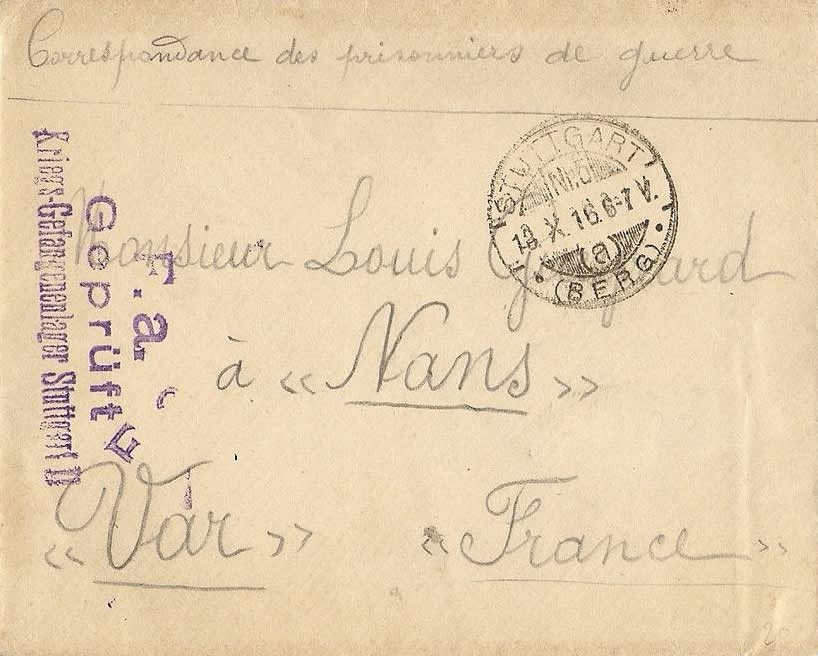 Correspondance des prisonniers de guerre
STUTTGART
Nr.5
X.16.6-7 V.
(a)
(BERG)
Monsieur Louis
à « Nans »
« Var » « France »
Kriegs-Gefangenenlager Stuttgart II
Geprüft
F.a.